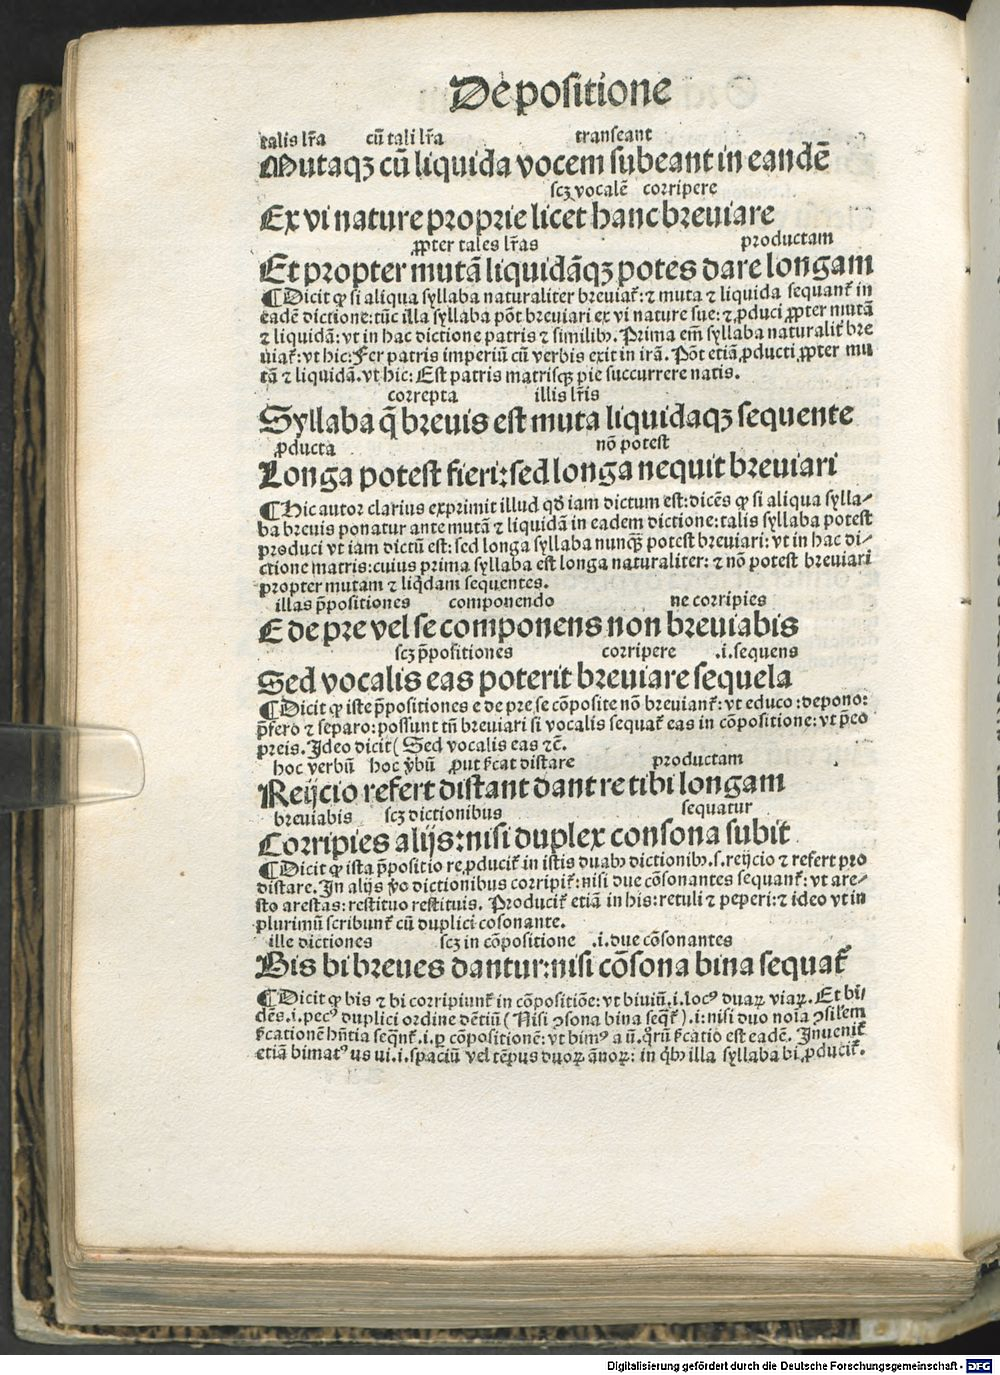 De positione
talis lr̃a cū tali lr̃a transeant
Mutaqꝫ cū liquida vocem subeant in eandē
scꝫ vocalē corripere
Ex vi nature proprie licet hanc breuiare
ꝓpter tales lr̃as productam
Et propter mutā liquidāqꝫ potes dare longam
¶ Dicit ꝙ si aliqua syllaba naturaliter breuiat᷑: ⁊ muta ⁊ liquida sequant᷑ in
eadē dictione: tūc illa syllaba pōt breuiari ex vi nature sue: ⁊ ꝓduci ꝓpter mutā
⁊ liquidā: vt in hac dictione patris ⁊ similibꝫ. Prima em̄ syllaba naturalit᷑ bre
uiat᷑: vt hic: Fer patris imperiū cū verbis exit in irā. Pōt etiā ꝓducti ꝓpter mu
tā ⁊ liquidā. vt hic: Est patris matrisqꝫ pie succurrere natis.
correpta illis lr̃is
Syllaba q̄ breuis est muta liquidaqꝫ sequente
ꝓducta nō potest
Longa potest fieri: sed longa nequit breuiari
¶ Hic autor clarius exprimit illud qd̄ iam dictum est: dicēs ꝙ si aliqua sylla-
ba breuis ponatur ante mutā ⁊ liquidā in eadem dictione: talis syllaba potest
produci vt iam dictū est: sed longa syllaba nunqꝫ̄ potest breuiari: vt in hac di-
ctione matris: cuius prima syllaba est longa naturaliter: ⁊ nō potest breuiari
propter mutam ⁊ liq̇dam sequentes.
illas p̄positiones componendo ne corripies
E de pre vel se componens non breuiabis
scꝫ p̄positiones corripere .i. sequens
Sed vocalis eas poterit breuiare sequela
¶ Dicit ꝙ iste p̄positiones e de pre se cōposite nō breuiant᷑: vt educo: depono:
p̄fero ⁊ separo: possunt tn̄ breuiari si vocalis sequat᷑ eas in cōpositione: vt p̄eo
preis. Ideo dicit (Sed vocalis eas ⁊c̄.
hoc verbū hoc v̄bū ꝓut ẜcat distare productam
Reijcio refert distant dant re tibi longam
breuiabis scꝫ dictionibus sequatur
Corripies alijs: nisi duplex consona subit
¶ Dicit ꝙ ista p̄positio re ꝓducit᷑ in istis duabꝫ dictionibꝫ .s. reijcio ⁊ refert pro
distare. In alijs v̄o dictionibus corripit᷑: nisi due cōsonantes sequant᷑: vt are-
sto arestas: restituo restituis. Producit᷑ etiā in his: retuli ⁊ peperi: ⁊ ideo vt in
plurimū scribunt᷑ cū duplici cosonante.
ille dictiones scꝫ in cōpositione .i. due cōsonantes
Bis bi breues dantur: nisi cōsona bina sequat᷑
¶ Dicit ꝙ bis ⁊ bi corripiunt᷑ in cōpositiōe: vt biuiū .i. locꝰ duaꝝ viaꝝ. Et bi-
dēs .i. pecꝰ duplici ordine dētiū (Nisi ꝯsona bina seq̄t᷑) .i: nisi duo noīa ꝯsilem
ẜcationē hn̄tia seqn̄t᷑ .i. ꝑ cōpositionē: vt bimꝰ a ū. q̇rū ẜcatio est eadē. Inuenit᷑
etiā bimatꝰ us ui .i. spaciū vel tēpus duoꝝ ānoꝝ: in q̇bꝫ illa syllaba bi ꝓducit᷑.
Digitalisierung gefördert durch die Deutsche Forschungsgemeinschaft - DFG